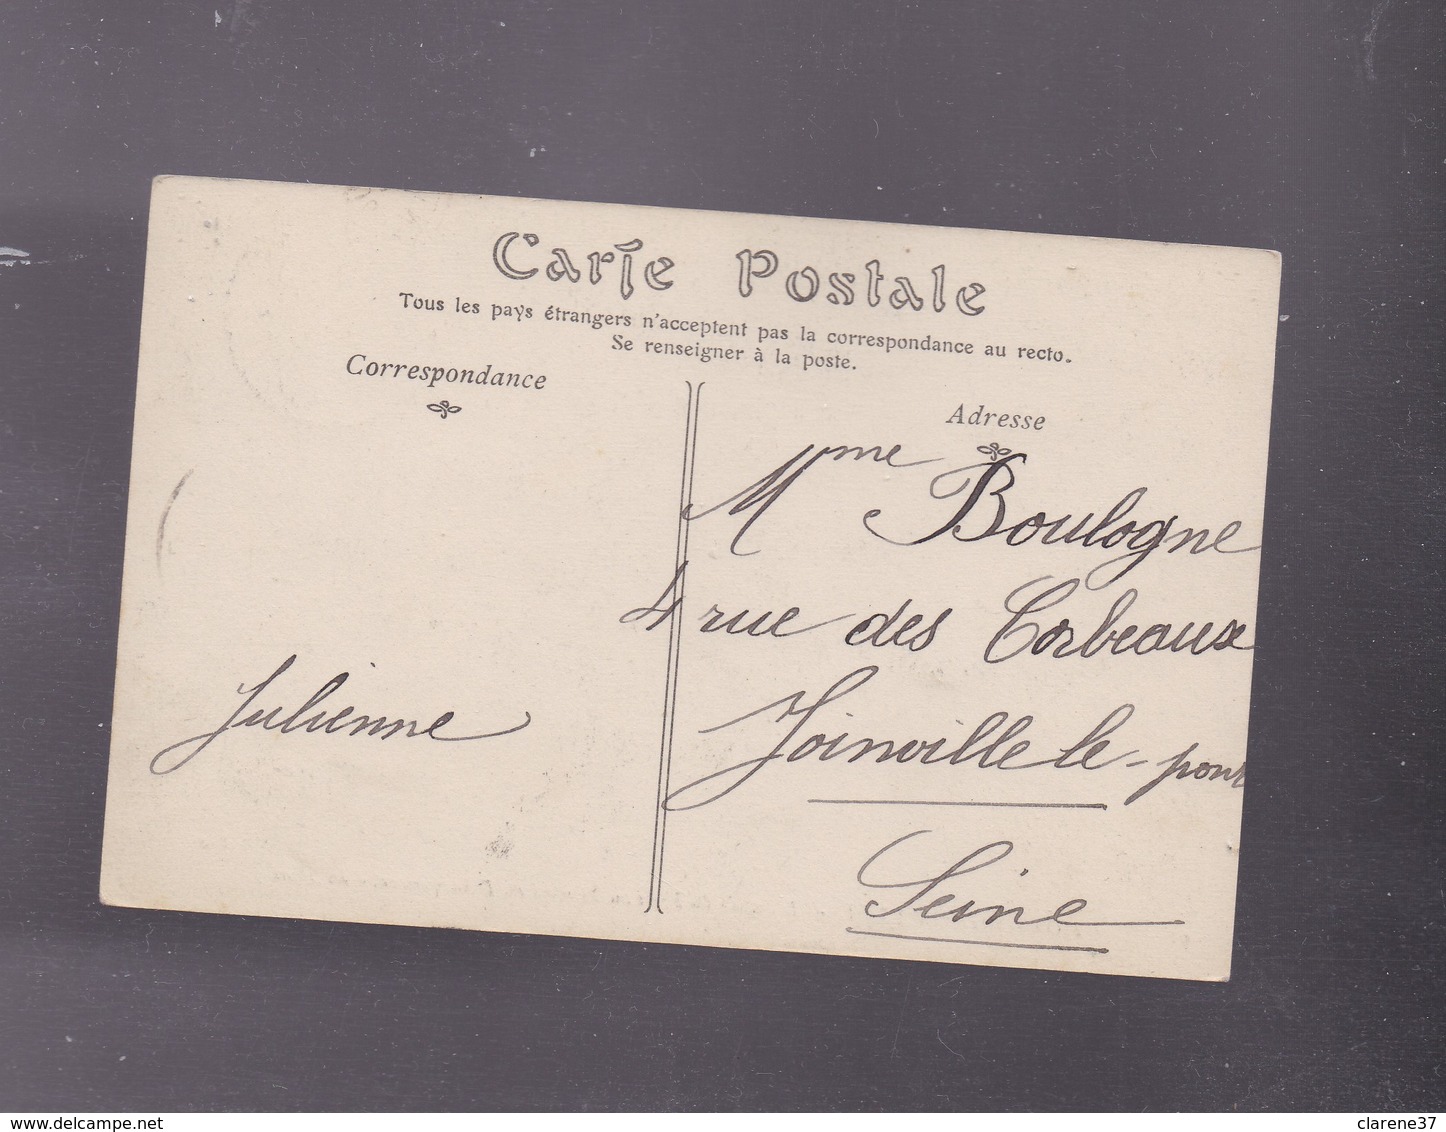 Carte Postale
Tous les pays étrangers n'acceptent pas la correspondance au recto.
Se renseigner à la poste.
Correspondance
Adresse
Mme Boulogne
4 rue des Corbeaux
Joinville le-pont
Seine
Julienne
www.delcampe.net
clarene37